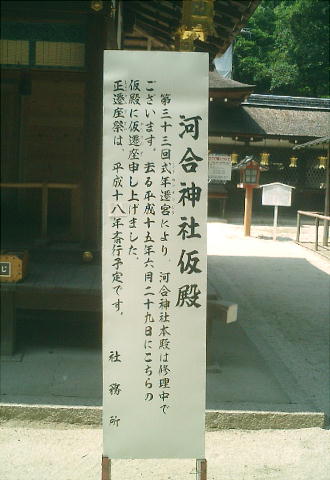 河合神社仮殿
第三十三回式年遷宮により、河合神社本殿は修理中で
ございます。去る平成十五年六月二十九日にこちらの
仮殿に仮遷座申し上げました。
正遷座祭は、平成十八年斎行予定です。
社務所